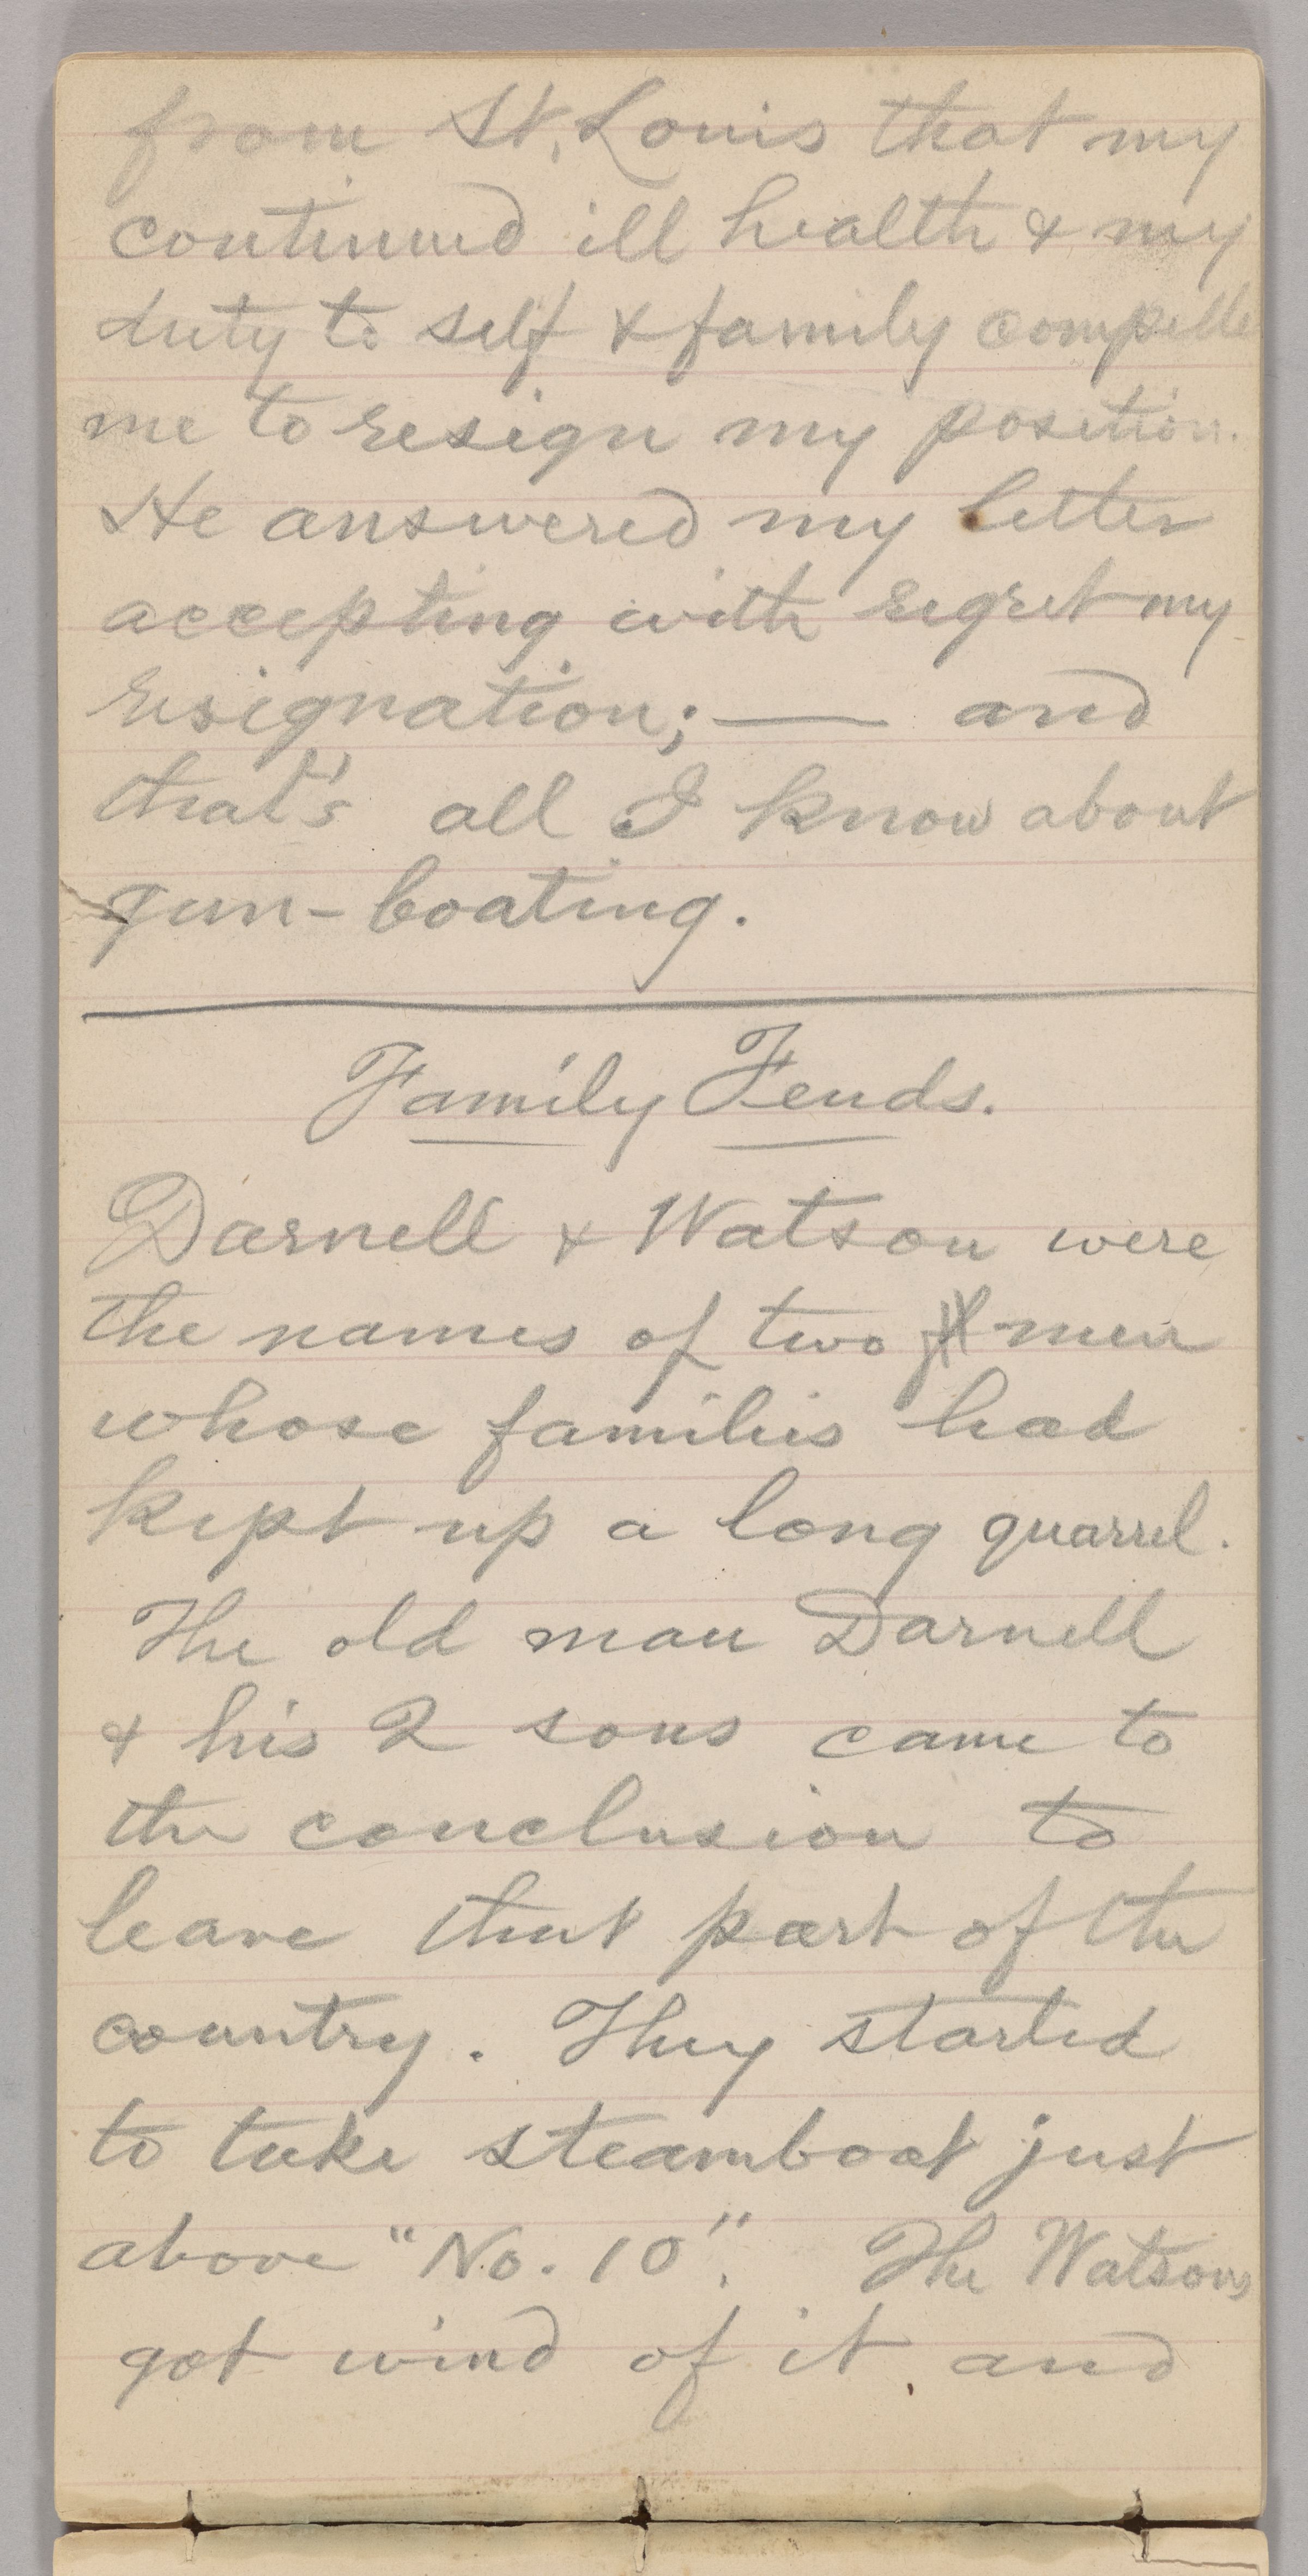 from St. Louis that my
continued ill health & my
duty to self & family compelle
me to resign my position.
He answered my letter
accepting with regret my
resignation; — and
that's all I know about
gun-boating.
Family Feuds.
Darnell & Watson were
the names of two men
whose families had
kept up a long quarrel.
The old man Darnell
& his 2 sons came to
the conclusion to
leave that part of the
country. They started
to take steamboat just
above "No. 10". The Watsons
got wind of it and